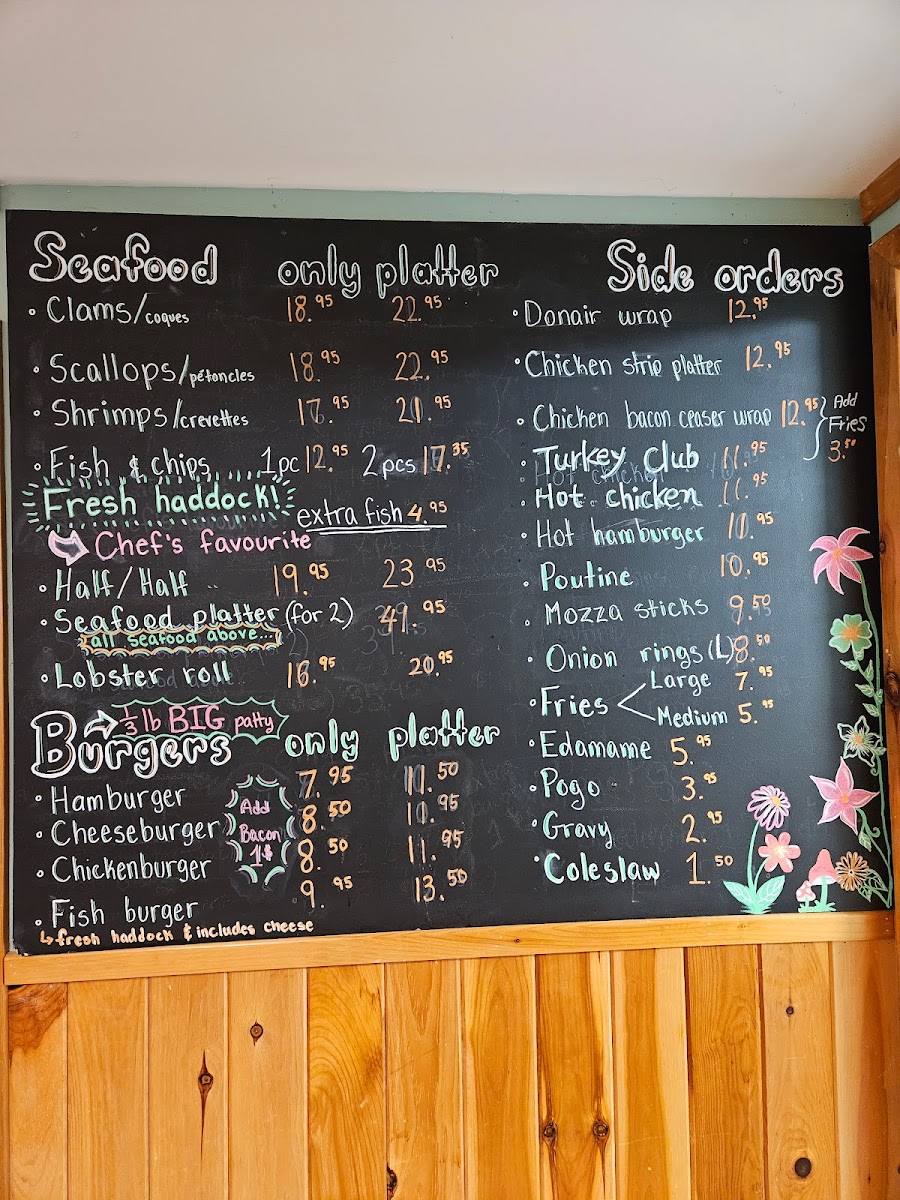 Seafood only platter
• Clams/coques 18.95 22.95
• Scallops/pétoncles 18.95 22.95
• Shrimps/crevettes 17.95 21.95
• Fish & chips 1pc 12.95 2pcs 17.35
Fresh haddock! extra fish 4.95
Chef's favourite
• Half/Half 19.95 23.95
• Seafood platter (for 2) 41.95
all seafood above...
• Lobster roll 16.95 20.95
1/3 lb BIG patty
Burgers only platter
• Hamburger 7.95 11.50
• Cheeseburger 8.50 10.95
• Chickenburger 8.50 11.95
• Fish burger 9.95 13.50
↳ fresh haddock & includes cheese
Add
Bacon
1$
Side orders
• Donair wrap 12.95
• Chicken strip platter 12.95
• Chicken bacon ceaser wrap 12.95
Add
Fries
3.50
• Turkey Club 11.95
• Hot chicken 11.95
• Hot hamburger 10.95
• Poutine 10.95
• Mozza sticks 9.50
• Onion rings (L) 8.50
• Fries Large 7.95
Medium 5.95
• Edamame 5.95
• Pogo 3.95
• Gravy 2.95
• Coleslaw 1.50